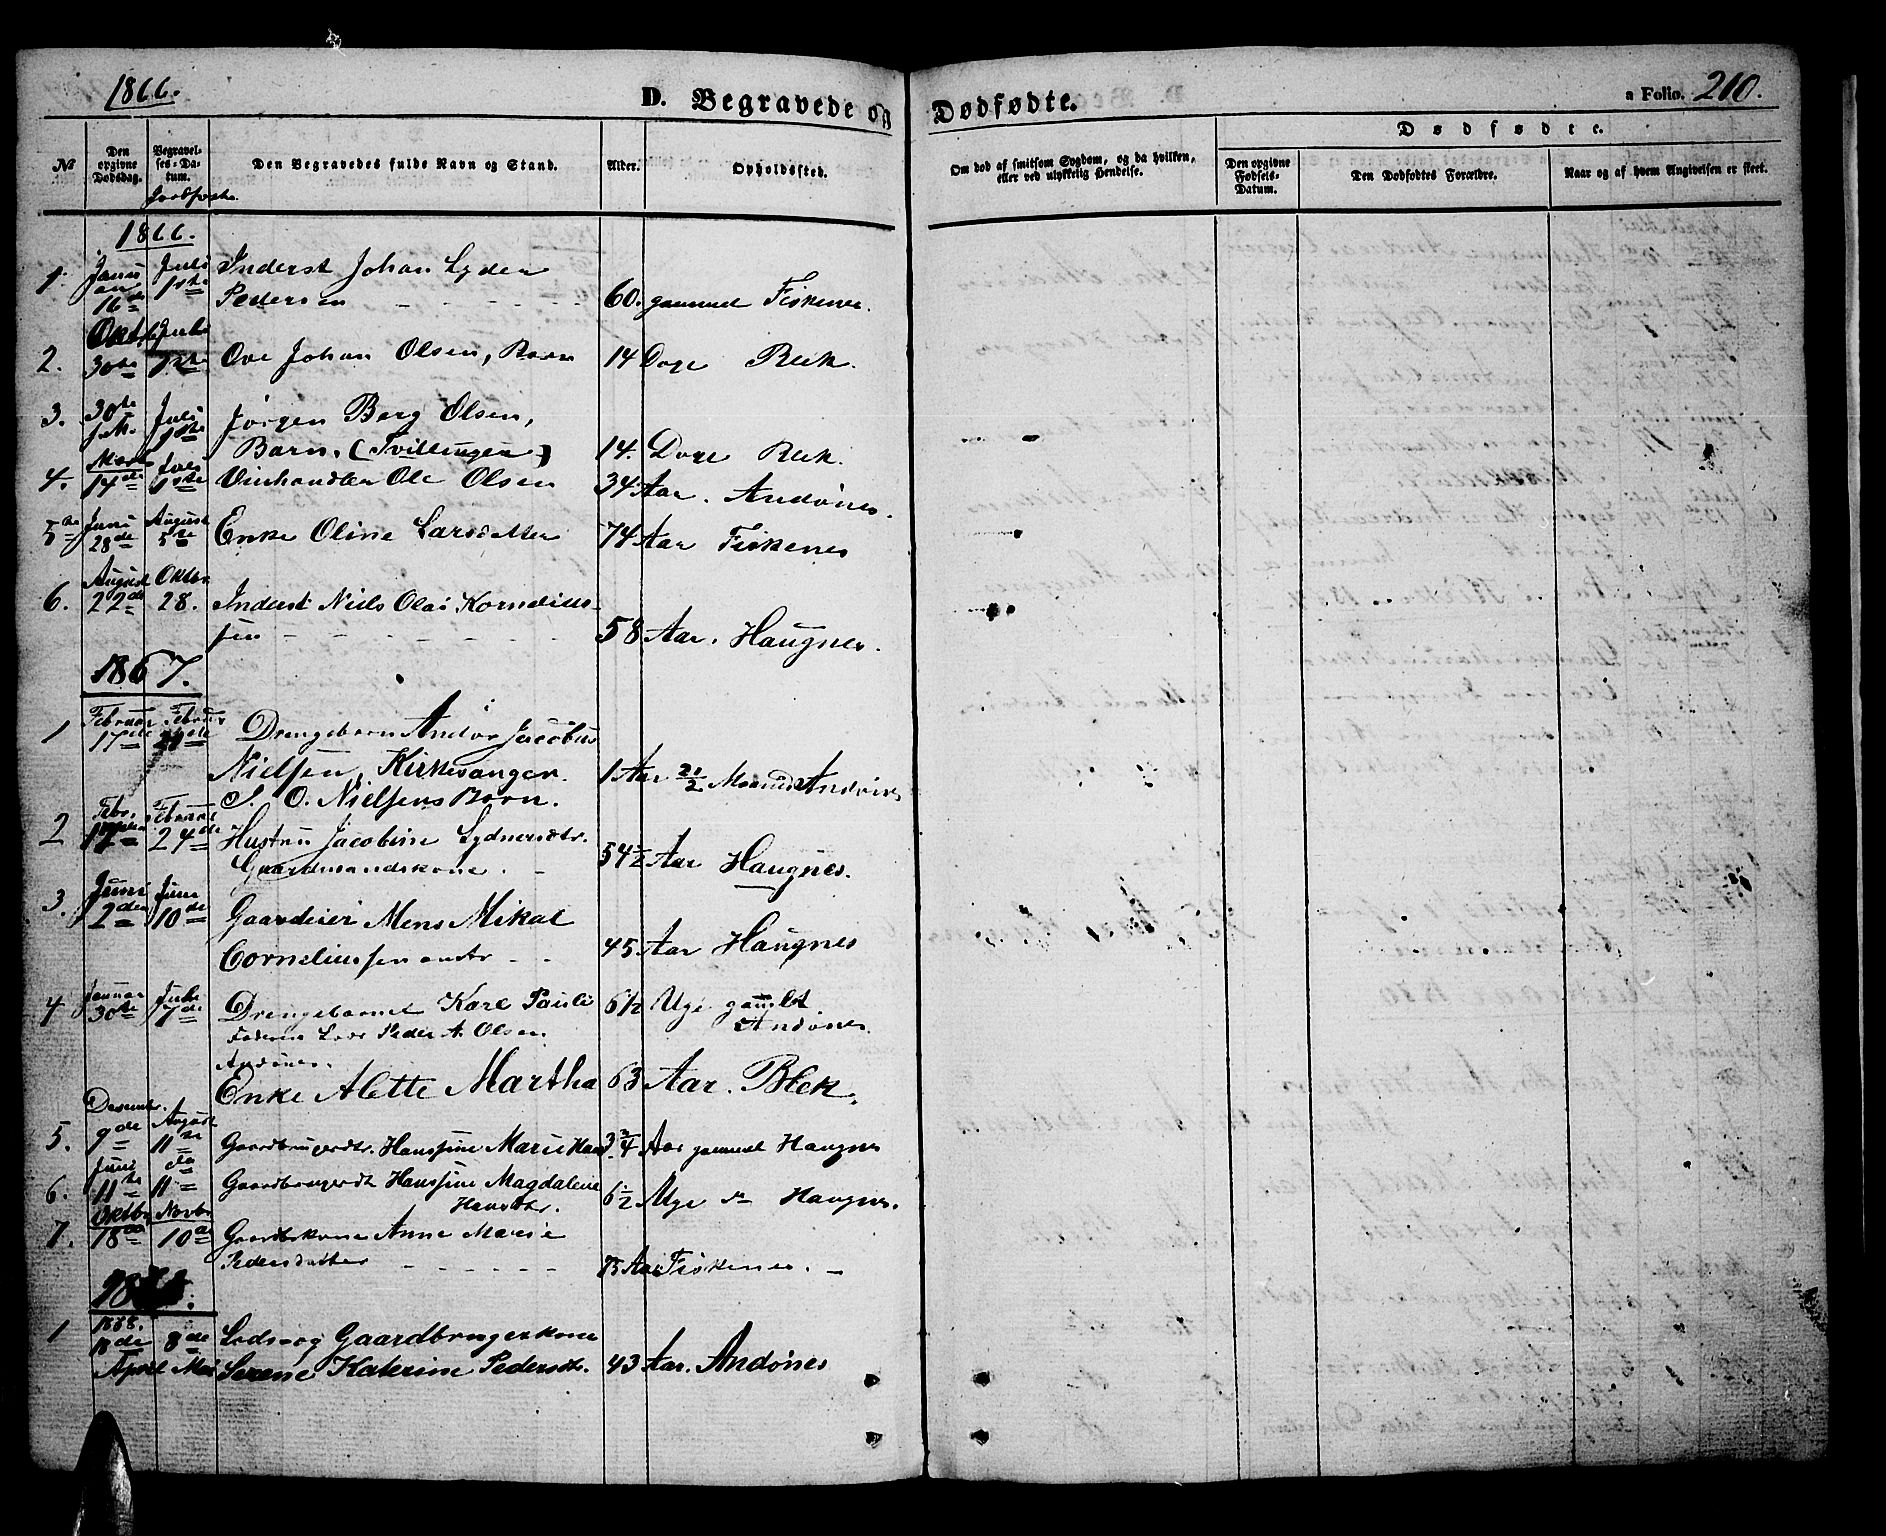 1866.
D. Begravede og Dødfødte.
a Folio. 210.
No
Den opgivne Dødsdag.
Begravelses-Datum.
Jordfæste
Den Begravedes fulde Navn og Stand.
Alder.
Opholdssted.
Om død af smitsom Sygdom, og da hvilken, eller ved ulykkelig Hendelse.
Dødfødte.
Den opgivne Fødsels-Datum.
Den Dødfødtes Forældre.
Naar og af hvem Angivelsen er skeet.
1866.
1. Januar 16de Juli 1ste Inderst Johan Lyder
Pedersen 60. gammel Fiskenes.
2. Oktb 30te 1ste Ove Johan Olsen, Barn 14 Dage Blek.
3. 30te f.M. Juli 1ste Jørgen Berg Olsen,
Barn. (Tvillinger) 14. Dage Blek.
4. Marts 14de Juli 1ste Vinhandler Ole Olsen 34 Aar. Andønes.
5te Juni 28de August 5te Enke Oline Larsdatter 74 Aar Fiskenes
6. August 22de Oktbr. 28. Inderst Niels Olai Kornelius-
sen 58 Aar. Haugnes.
1867.
1 Februar 17de Februar Drengebarn Andor Jacobus
Nielsen, Kirkesanger 1 Aar 2 1/2 Maaned Andønes
S. O. Nielsens Barn.
2 Febr. 17 Februar 24de Hustru Jacobine Lydersdtr.
Gaardmandskone. 54 1/2 Aar Haugnes.
3. Juni 2den Juni 10de Gaardeier Mens Mikal
Corneliussen 45 Aar Haugnes
4 Januar 30te Juli 7de Drengebarnet Karl Pauli 6 1/2 Uge gamlet
Faderen Lods Peder A. Olsen Andønes.
Andønes.
Enke Alette Martha 63 Aar. Blek.
5. Desembr. 9de August 11te Gaardbrugerdtr. Hanssine Marie Hans 3 3/4 Aar gammel Haugnes
6. Juni 11te do 11 Gaardbrugerdt Hanssine Magdalene
Hansdtr. 6 1/2 Uge Haugnes.
7. Oktbr 18de Novbr 10d Gaardbskone Anne Marie
Pedersdatter 75 Aar Fiskenes.
1868.
1 1868. 18de 8de Lods og Gaardbrugerkone
April Mai Serene Katerine Pedersdtr. 43 Aar. Andønes